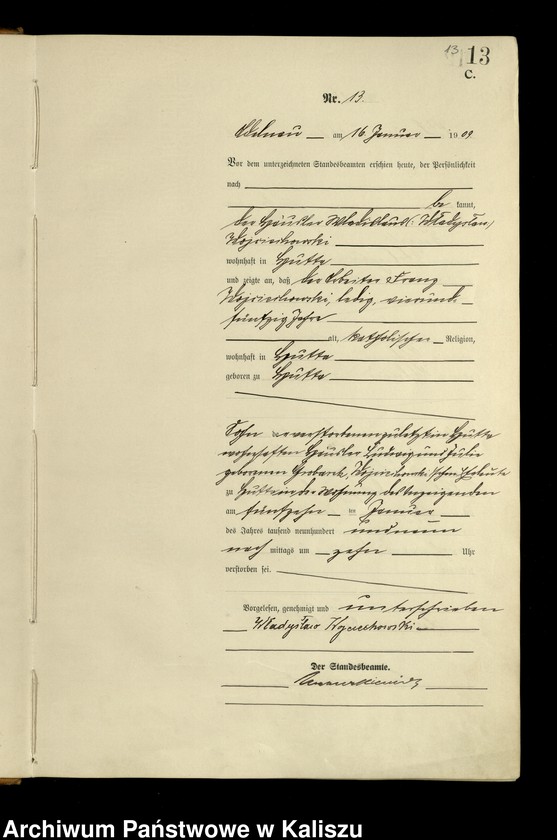 13 13
C.
Nr. 13.
Adelnau am 16 Januar 1909
Vor dem unterzeichneten Standesbeamten erschien heute, der Persönlichkeit
nach
be kannt,
der Häusler Wladislaus (Władysław)
Wojciechowski
wohnhaft in Hutta
und zeigte an, daß der Arbeiter Franz
Wojciechowski, ledig, vierund-
fünfzig Jahre
alt, katholischer Religion,
wohnhaft in Hutta
geboren zu Hutta
Sohn der verstorbenen zuletzt in Hutta
wohnhaften Häusler Ludwig und Julie
geborenen Wojciechowski'schen Eheleute
zu Hutta in der Wohnung des Anzeigenden
am fünfzehn ten Januar
des Jahres tausend neunhundert und neun
nach mittags um zehn Uhr
verstorben sei.
Vorgelesen, genehmigt und unterschrieben
Władysław Wojciechowski
Der Standesbeamte.
Archiwum Państwowe w Kaliszu